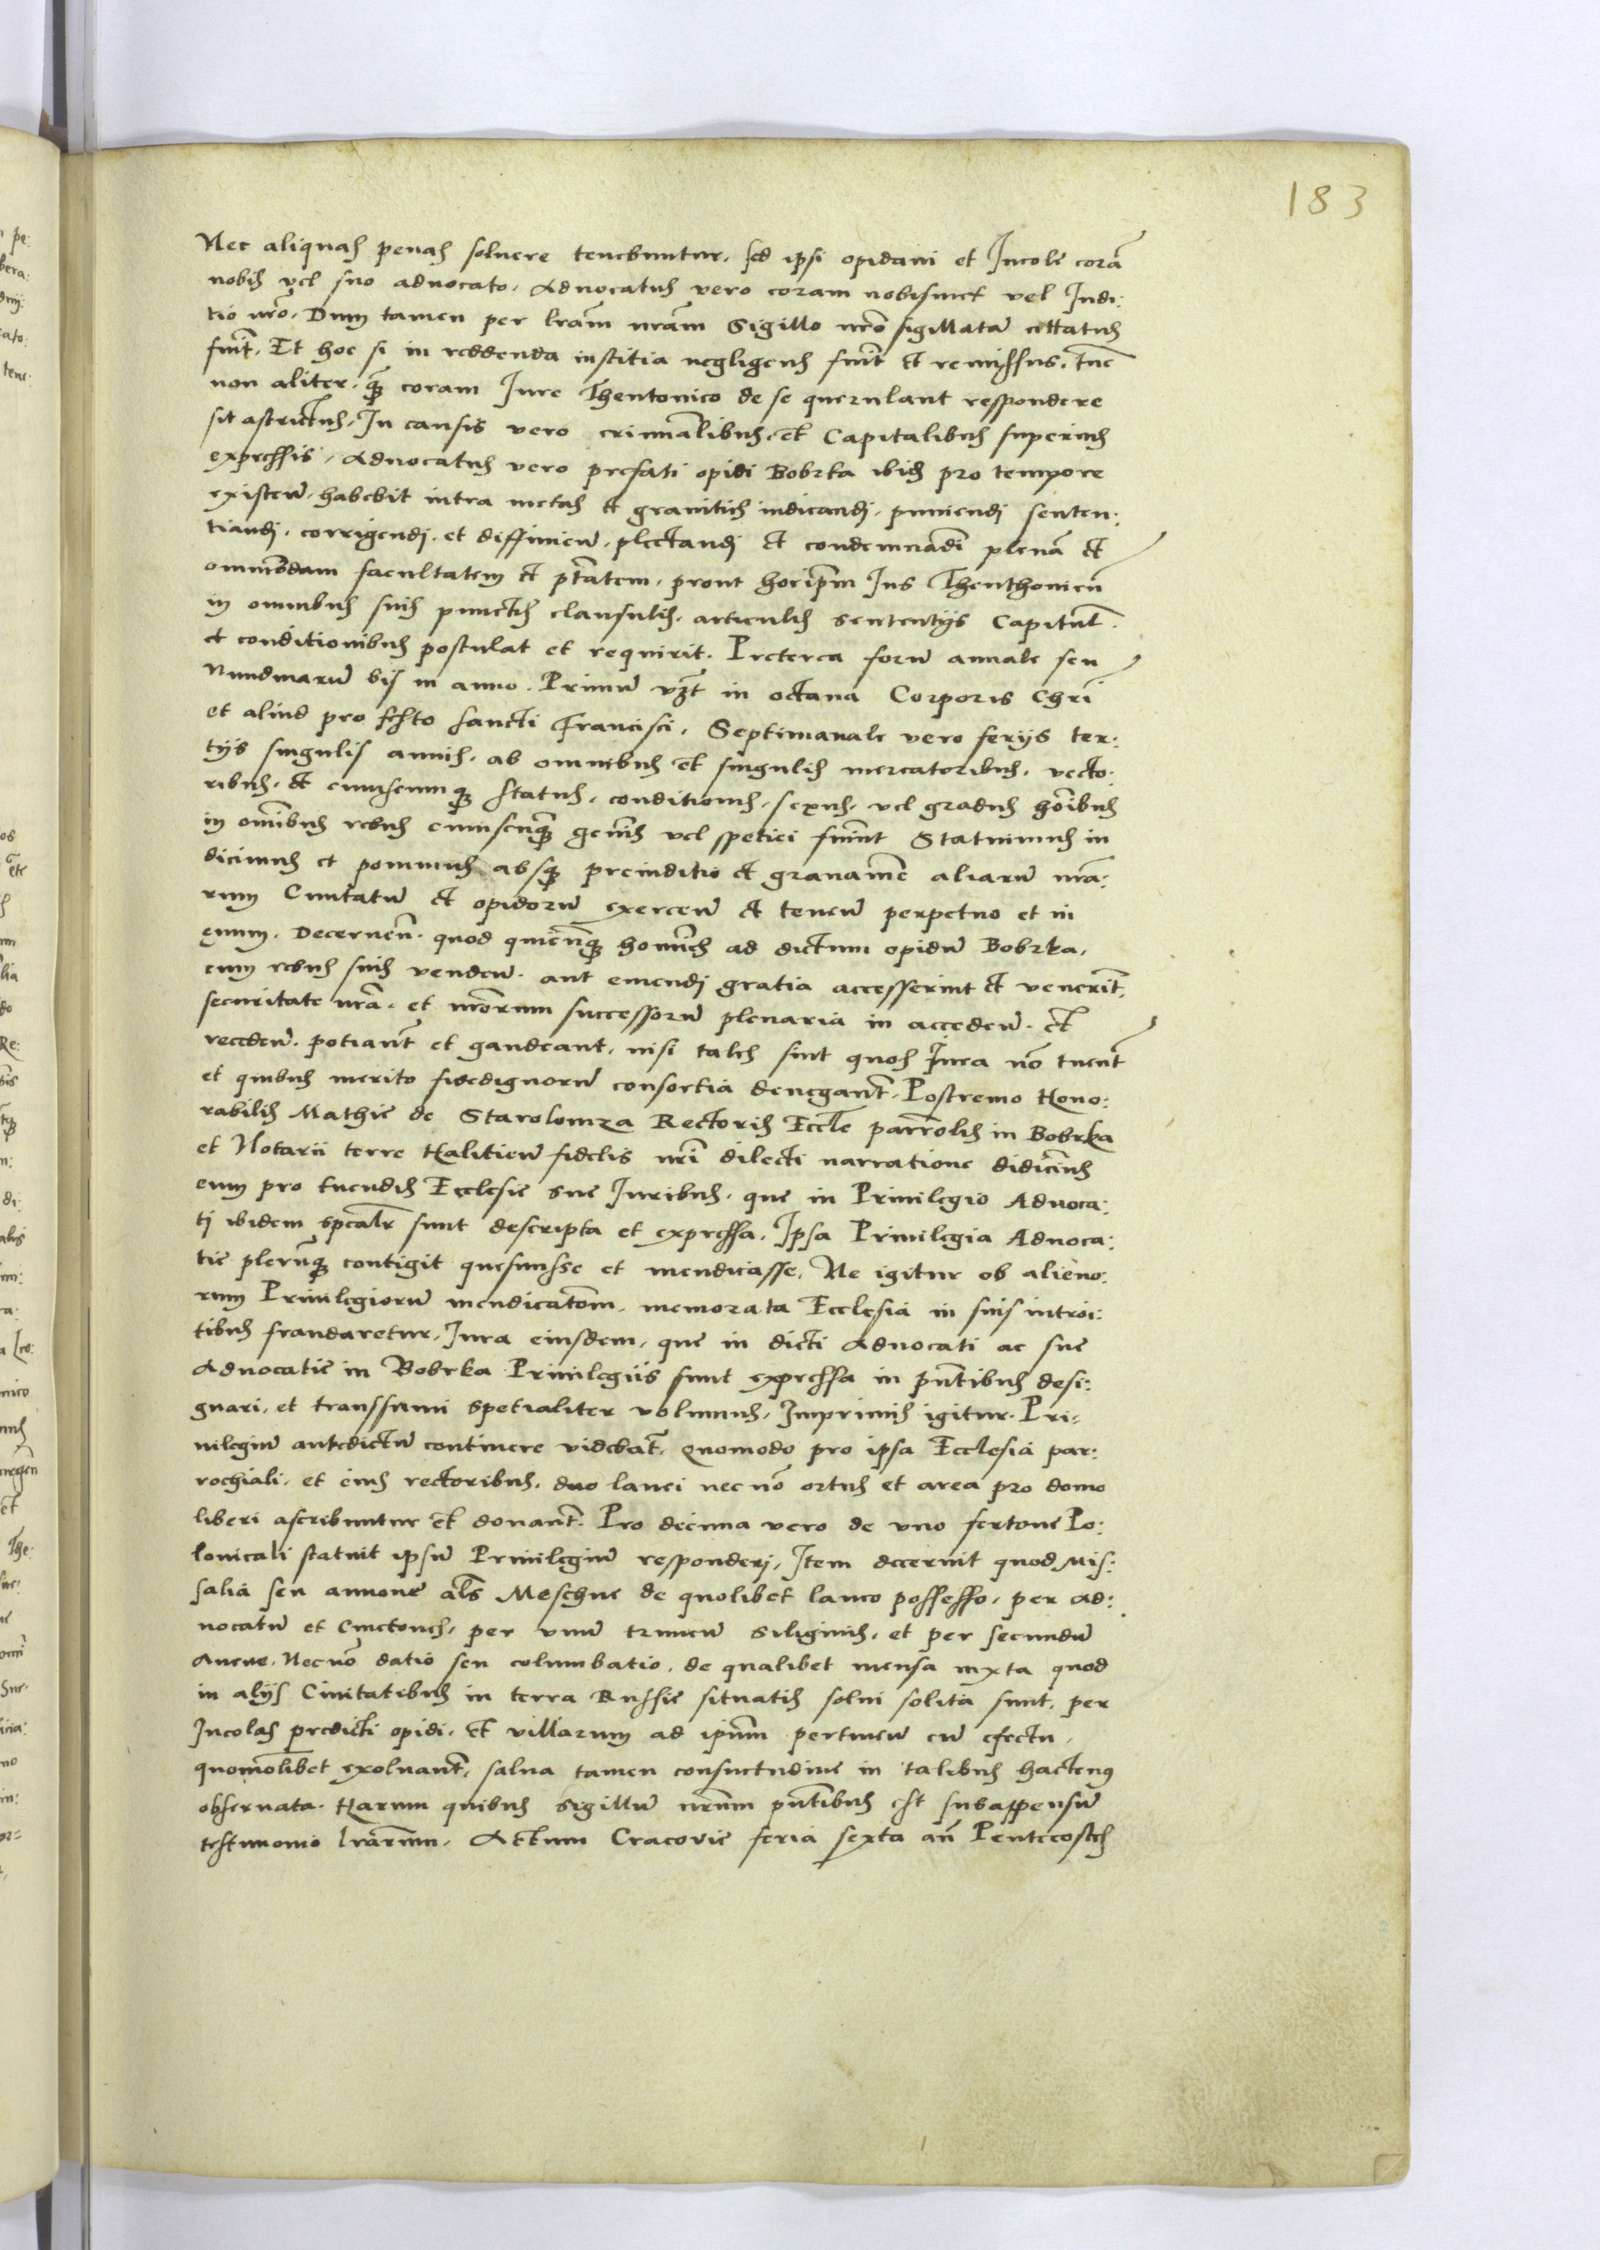 183
Nec aliquas penas soluere tenebuntur, sed ipsi opidani et Incole corã
nobis vel suo aduocato, Aduocatus vero coram nobismet vel Iudi:
tio nrõ. Dum tamen per lrãm nrãm Sigillo nrõ sigillatam cittatus
fuit̃. Et hoc si in reddenda iustitia negligens fuit̃ et remissus. tunc
non aliter, q̃ coram Iure Theutonico de se querulant respondere
sit astrictus, In causis vero criminalibus, et Capitalibus superius
expressis, Aduocatus vero prefati opidi Bobrka ibid pro tempore
existeñ, habebit intra metas et granities iudicandj, puniendj senten:
tiandj, corrigendj, et diffinieñ, plectandj et condemnãdi plenã et
omnimodam facultatem et ptãtem, prout hocip̃m Ius Theuthonicũ
in omnibus suis punctis clausulis, articulis sententijs Capitul̃.
et conditionibus postulat et requirit. Preterea forũ annale seu
Nundinarũ bis in anno. Primũ vz̃t in octaua Corporis Chrĩ
et aliud pro festo sancti Francisci, Septimanale vero ferijs ter:
tijs singulis annis, ab omnibus et singulis mercatoribus, vecto:
ribus, et cuiuscumq̃ status, conditionis, sexus, vel gradus hoĩbus
in oñibus rebus cuiuscunq̃ geñis vel spetiei fuiñt Statuimus in
dicimus et ponimus absq̃ preiuditio et grauamiñe aliarũ nrã:
rum Ciuitatũ et opidorũ exerceñ et teneñ perpetuo et in
ęuum. Decerneñ. quod quicũnq̃ homines ad dictum opidũ Bobrka,
cum rebus suis vendeñ. aut emendj gratia accesserint et venerit̃,
securitate nrã. et nrõrum successorũ plenaria in accedeñ. et
recedeñ. potiant̃ et gaudeant, nisi tales sint quos Iura nõ tuent̃
et quibus merito fidedignorũ consortia denegant̃. Postremo Hono:
rabilis Mathie de Starolomza Rectoris Eccl̃e parrõlis in Bobrka
et Notarii terre Halicieñ fidelis nrĩ dilecti narratione didicim̃us
eum pro tuendis Ecclesie sue Iuribus, que in Priuilegio Aduoca:
ti ibidem spcal̃r sunt descripta et expressa, Ipsa Priuilegia Aduoca:
tie plerũq̃ contigit quesiuisse et mendicasse, Ne igitur ob alieno:
rum Priuilegiorũ mendicatõm, memorata Ecclesia in suis introi:
tibus fraudaretur, Iura eiusdem, que in dicti Aduocati ac sue
Aduocatie in Bobrka Priuilegiis sunt expressa in pñtibus desi:
gnari, et transsumi spetialiter volumus, Imprimis igitur. Pri=
uilegiũ antedictũ continere videbat̃, Quomodo pro ipsa Ecclesia par:
rochiali, et eius rectoribus, duo lanei nec nõ ortus et area pro domo
liberi ascribuntur et donant̃. Pro decima vero de vno fertone Po:
lonicali statuit ipsũ Priuilegiũ responderj, Item decernit quod Mis:
salia seu annone als̃ Meschne de quolibet laneo possesso, per Ad:
uocatũ et Cmetones, per vnũ truncũ siliginis, et per secundũ
Auene, Necnõ datio seu columbatio, de qualibet mensa iuxta quod
in alijs Ciuitatibus in terra Russie situatis solui solita sunt, per
Incolas predicti opidi, et villarum ad ipũm pertineñ cũ efectu,
quomõlibet exoluant̃, salua tamen consuetudine in talibus hactenus
obseruata. Harum quibus sigillũ nrũm pñtibus est subappensũ
testimonio lrãrum, Actum Cracovie feria sexta añ Pentecostes